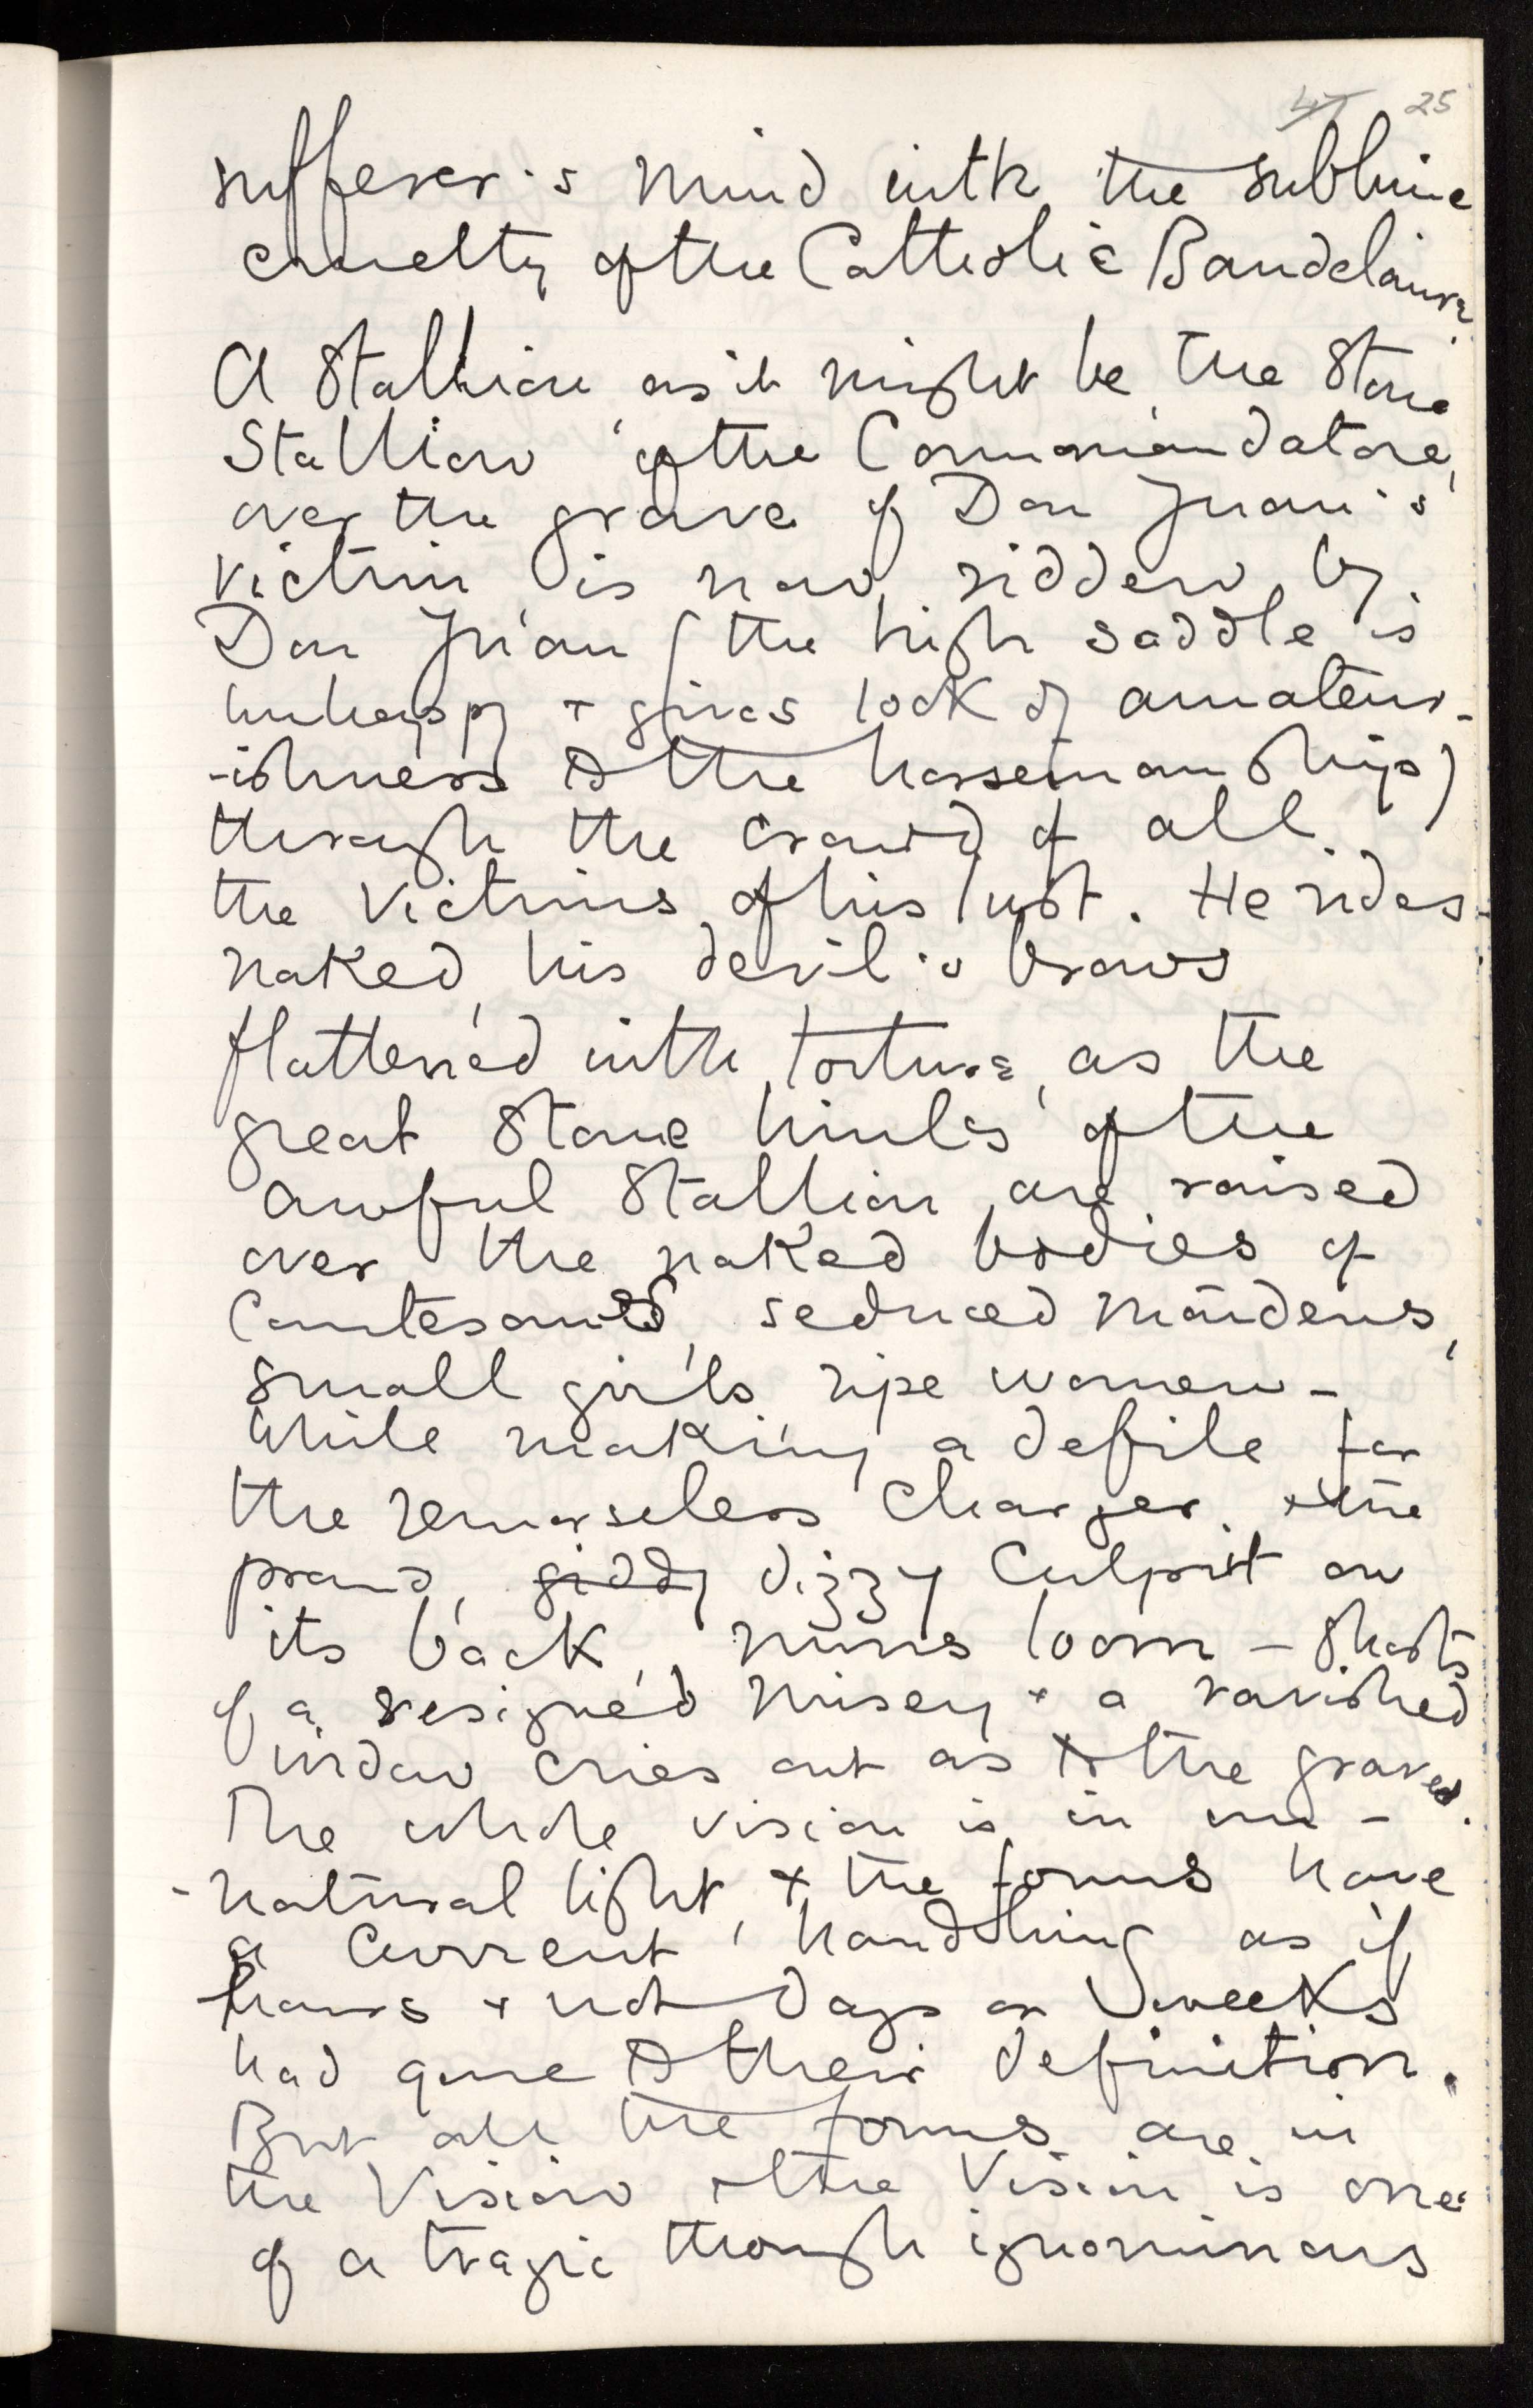 47 25
sufferer's mind with the sublime
cruelty of the Catholic Baudelaire.
A Stallion as it might be, the Stone
Stallion of the Commandatore,
over the grave of Don Juan's
victim is now ridden by
Don Juan (the high saddle is
unhappy + gives look of amateur-
-ishness to the horsemanship)
through the crowd of all
the victims of his lust. He rides
naked, his devil's brows
flattened with torture, as the
great stone limbs of the
awful Stallion are raised
over the naked bodies of
Courtesans, seduced maidens,
small girls, ripe women -
While making a defile for
the remorseless Charger. + the
proud, giddy dizzy Culprit on
its back, nuns loom - Ghosts
of a resigned misery + a ravished
widow cries out as to the graves.
The whole vision is in un-
-natural light, + the forms have
a current handling as if
hours + not days or weeks
had gone to their definition.
But all the forms are in
the Vision + the Vision is one
of a tragic though ignominous